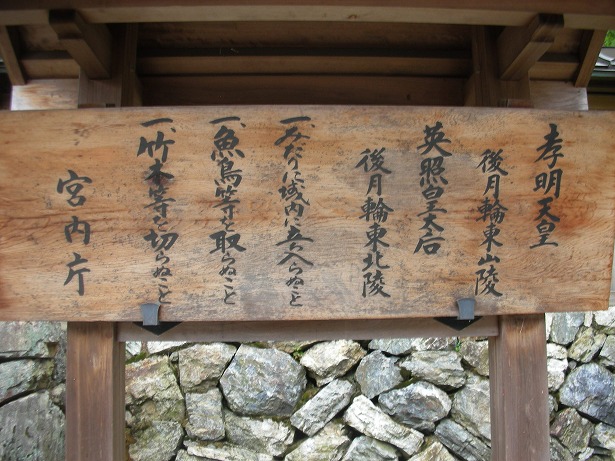 孝明天皇
後月輪東山陵
英照皇太后
後月輪東北陵
一、みだりに域内に立入らぬこと
一、魚鳥等を取らぬこと
一、竹木等を切らぬこと
宮内庁